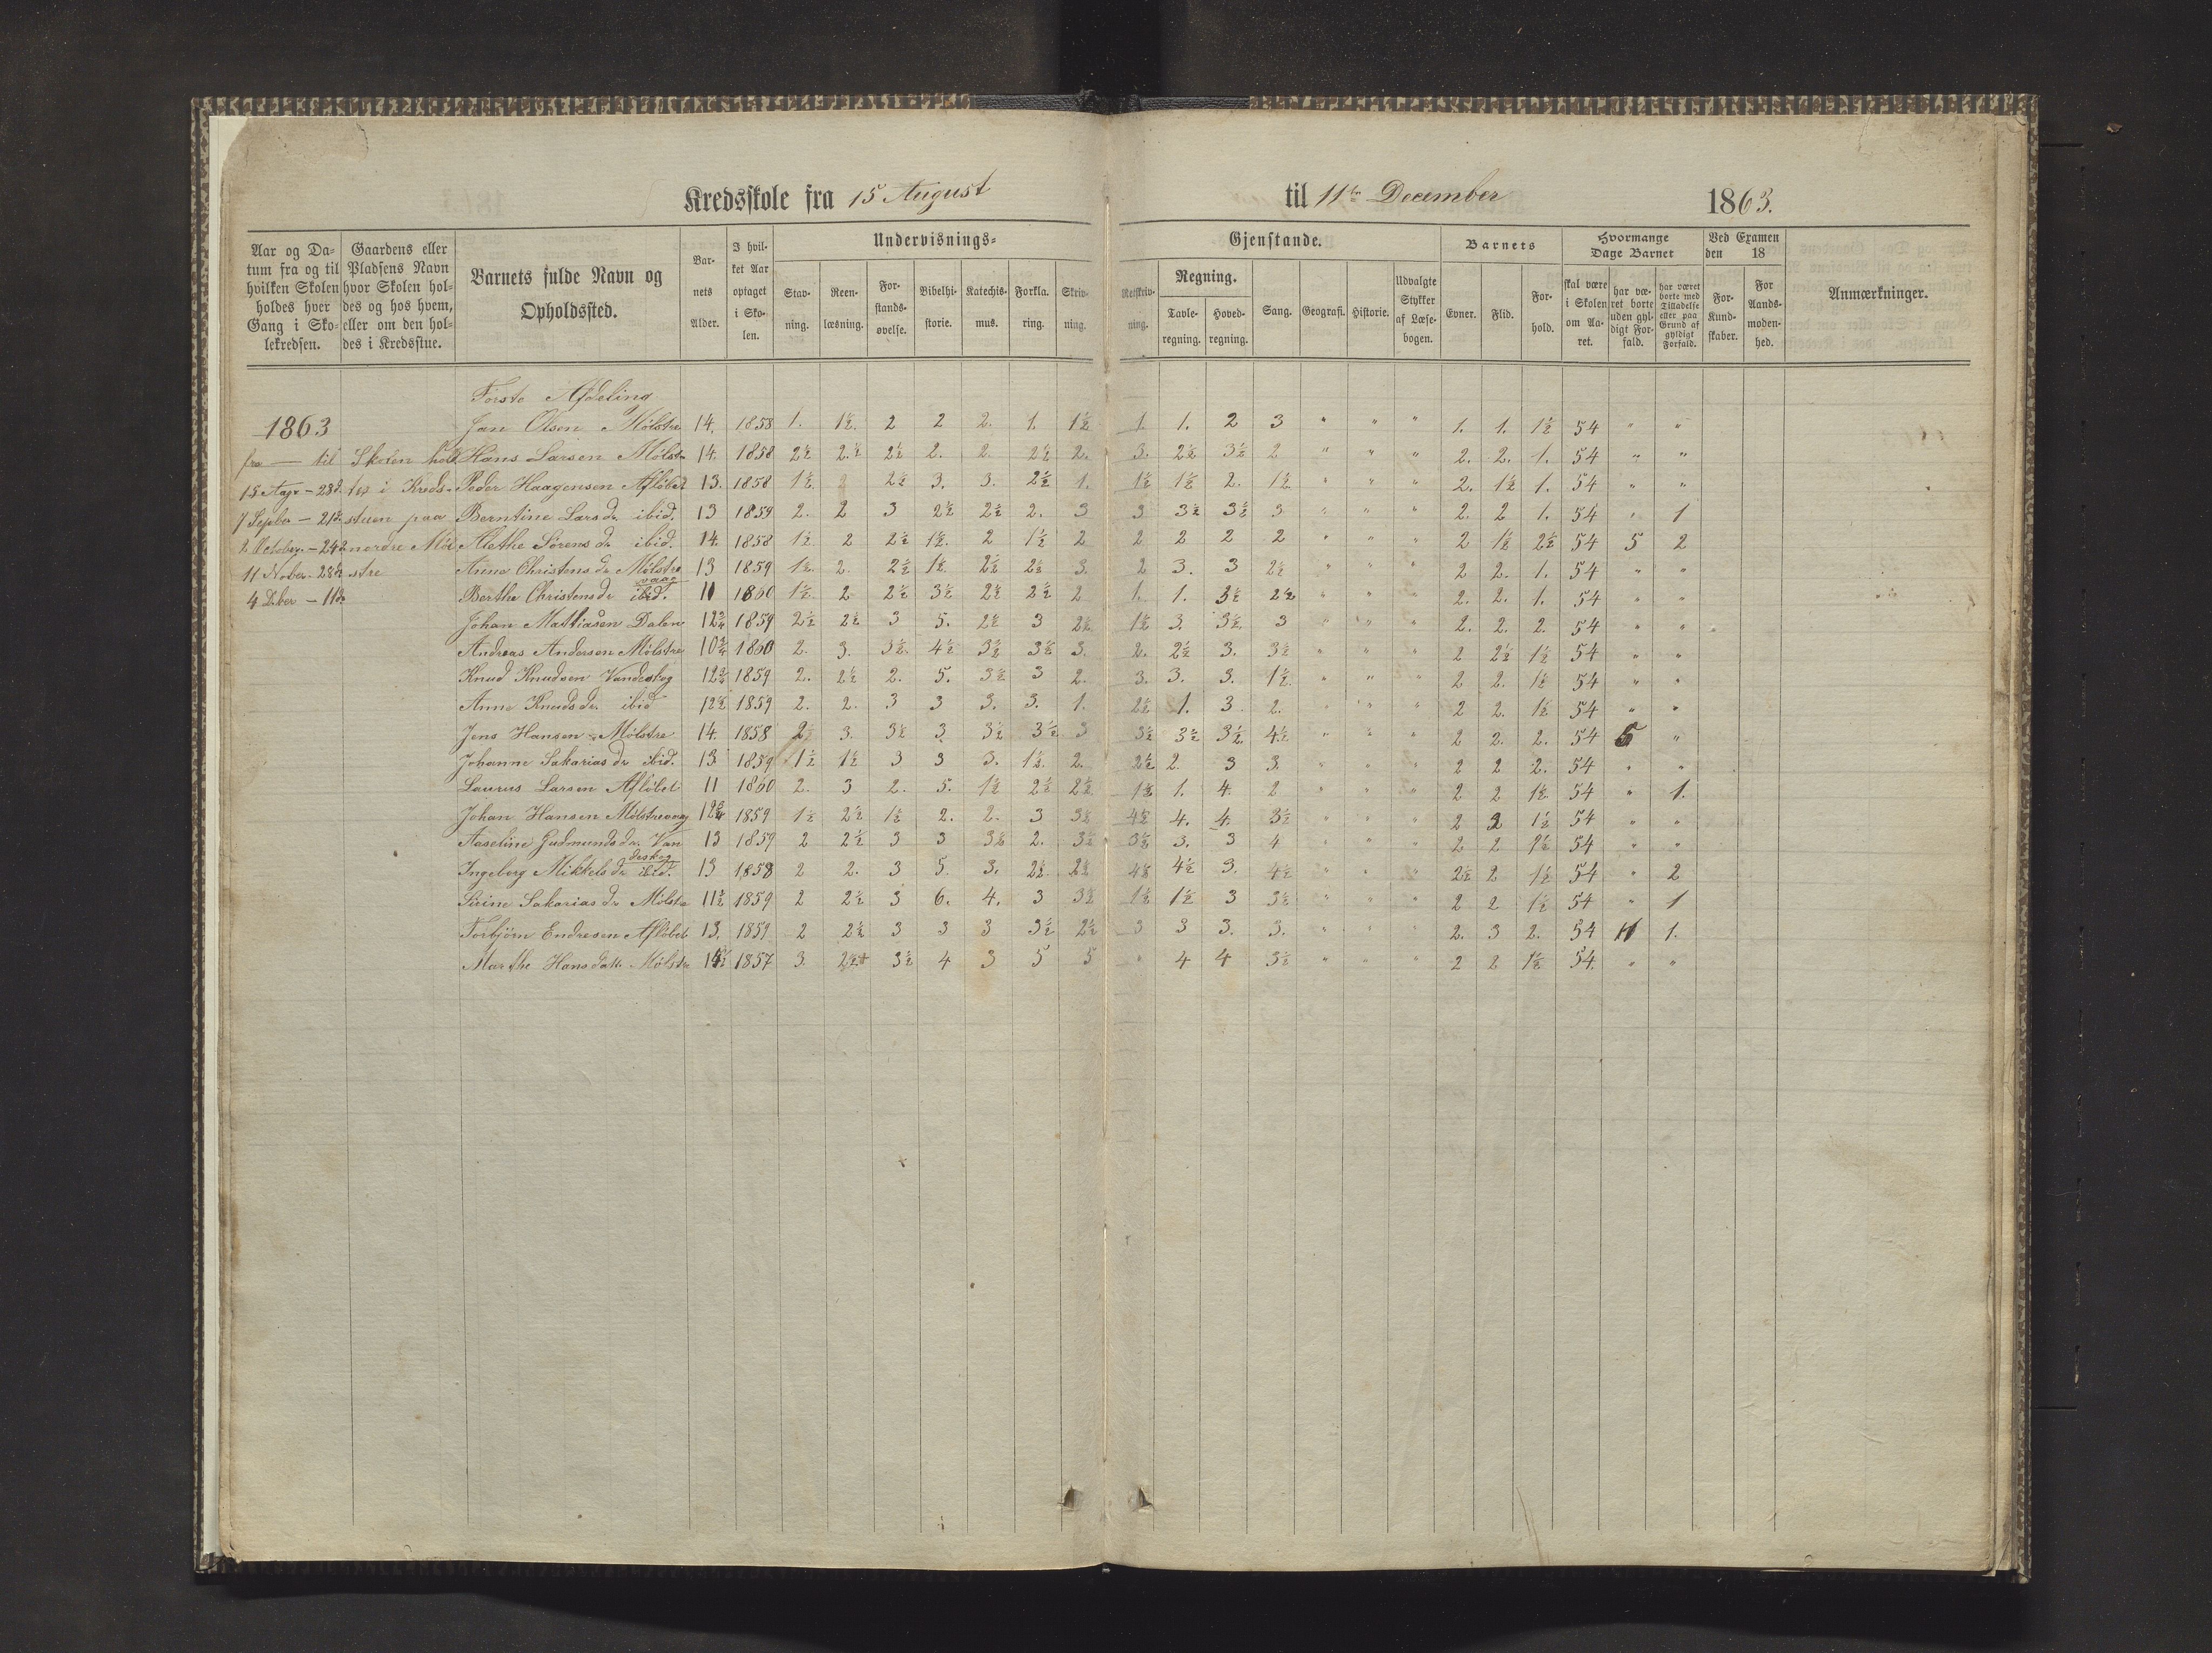 Kredsskole fra 15 August til 11te December 1863.
Aar og Datum fra og til hvilken Skolen holdes hver Gang i Skolekredsen. | Gaardens eller Pladsens Navn hvor Skolen holdes og hos hvem, eller om den holdes i Kredsstue. | Barnets fulde Navn og Opholdssted. | Barnets Alder. | I hvilket Aar optaget i Skolen. | Undervisnings- Gjenstande. | Barnets | Hvormange Dage Barnet | Ved Examen den 18 | Anmærkninger.
Stavning. | Reenlæsning. | Forstandsøvelse. | Bibelhistorie. | Katechismus. | Forklaring. | Skrivning. | Retskrivning. | Regning. Tavleregning. | Hovedregning. | Sang. | Geografi. | Historie. | Udvalgte Stykker af Læsebogen. | Evner. | Flid. | Forhold. | skal være i Skolen om Aaret. | har været borte uden gyldigt Forfald. | har været borte med Tilladelse eller paa Grund af gyldigt Forfald. | For Kundskaber. | For Aandsmodenhed.
Første Afdeling
1863 Jan Olsen Mølstre 14. 1858 1. 1½. 2 2 2. 1. 1½ 1. 1. 2 3 " " " 1. 1. 1½ 54 " "
fra — til Skolen hold Hans Larsen Mølstr 14. 1858 2½ 2.½ 2½ 2. 2. 2½ 2. 3. 2½ 3½ 2 " " " 2. 2. 1. 54 " "
15 Aug - 28d. tes i Kreds- Peder Haagensen Afløbet 13. 1858 1½. 2 2½ 3. 3. 2½ 1. 1½ 1½ 2. 1½ " " " 2. 1½ 1. 54 " "
7 Sepber - 21d. stuen paa Berntine Larsdr ibid. 13 1859 2. 2 3 2½ 2½ 2. 3 3 3½ 3½ 3 " " " 2. 2 1. 54 " 1
2 October. - 24d nordre Møl Alethe Sørensdr ibid. 14. 1858 1½ 2 2½ 1½. 2 1½ 2 2 2 2 2 " " " 2 1½ 2½ 54 5 2
11 Nober - 28d stre Anne Christensdr Mølstre 13 1859 1½. 2. 2½ 1½ 2½ 2½ 3. 2 3. 3 2½ " " " 2 2. 1. 54 " "
vaag
4 Dber - 11d. Berthe Christensdr ibid. 11 1860 1½. 2 2½ 3½ 2½ 2½ 2 1. 1. 3½ 2½ " " " 2. 2. 1. 54 " "
Johan Mathiasen Dalen 12¾ 1859 2½ 2½ 3 5. 2½ 3 2½ 1½ 3. 3½. 3 " " " 2. 2. 2. 54 " "
Andreas Andersen Mølstre 10¾ 1860 2. 3. 3½. 4½ 3½ 3½ 3. 2. 2½ 3. 3½ " " " 2 2½ 1½ 54 " "
Knud Knudsen Vandeskog 12¾ 1859 2. 2½ 2. 5. 3½ 3 2. 3. 3. 3. 1½. " " " 2 2. 1½ 54 " "
Anne Knudsdr ibid 12½ 1859 2. 2. 3 3 3. 3. 1. 2½ 1. 3. 2. " " " 2 2. 1½ 54 " "
Jens Hansen Mølstre 14. 1858 2½ 3. 3½ 3. 3½ 3½. 3 3½ 3½ 3½. 4½ " " " 2 2. 2. 54 5 "
Johanne Sakariasdr ibid. 13 1859 1½ 1½ 3 3 3. 1½. 2. 2½ 2. 3 3. " " " 2 2 2. 54 " "
Laurus Larsen Afløbet 11 1860 2. 3 2. 5. 1½ 2½ 2½ 1½ 1. 4. 2 " " " 2 2 1½ 54 " 1.
Johan Hansen Mølstrevaag 12¾ 1859 1½ 2½ 1½ 2. 2. 3 3½ 4½ 4. 4. 3½ " " " 2 2 1½ 54 " "
Aaseline Gudmundsdr. Van 13 1859 2 2½ 3 3 3½ 2. 3½ 3½ 3. 3 4 " " " 2 2 1½ 54 " "
deskog
Ingeborg Mikkelsdr ibid. 13 1858 2 2. 3 5. 3. 2½ 2½ 4½ 4½ 3. 4½ " " " 2½ 2 1½ 54 " 2
Sakariasdr Mølstre 11½ 1859 2 2½ 3 6. 4. 3 3½ 1½ 1½ 3 3½ " " " 2 2 1½ 54 " 1
Torbjørn Endresen Afløbet 13. 1859 2 2½ 3 3 3 3½ 2½ 3 3 3. 3. " " " 2. 3 2. 54 11 1.
Marthe Hansdatt. Mølstre 1857 3. 3½ 4 3 5 5 " 4 4 3½ " " " 2 2 1½ 54. " "